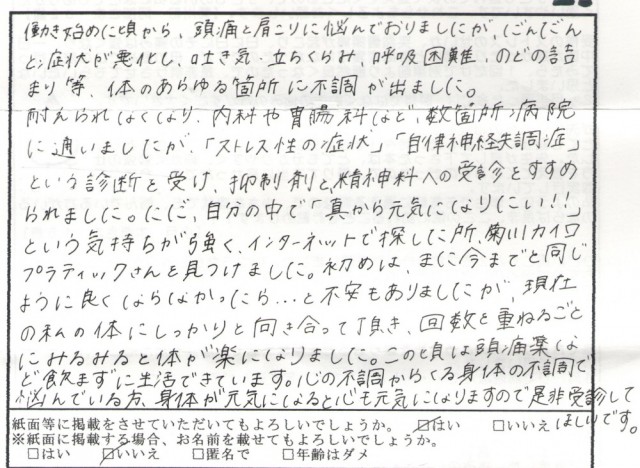 働き始めた頃から、頭痛と肩こりに悩んでおりましたが、だんだん
と症状が悪化し、吐き気・立ちくらみ、呼吸困難、のどの詰
まり等、体のあらゆる箇所に不調が出ました。
耐えられなくなり、内科や胃腸科など、数箇所病院
に通いましたが、「ストレス性の症状」「自律神経失調症」
という診断を受け、抑制剤と、精神科への受診をすすめ
られました。ただ、自分の中で「真から元気になりたい!!」
という気持ちが強く、インターネットで探した所、菊川カイロ
プラティックさんを見つけました。初めは、また今までと同じ
ように良くならなかったら…と不安もありましたが、現在
の私の体にしっかりと向き合って頂き、回数を重ねるごと
にみるみると体が楽になりました。この頃は頭痛薬な
ど飲まずに生活できています。心の不調からくる身体の不調で
悩んでいる方、身体が元気になると心も元気になりますので是非受診して
ほしいです。
紙面等に掲載をさせていただいてもよろしいでしょうか。 ☑はい □いいえ
※紙面に掲載する場合、お名前を載せてもよろしいでしょうか。
□はい ☑いいえ □匿名で □年齢はダメ